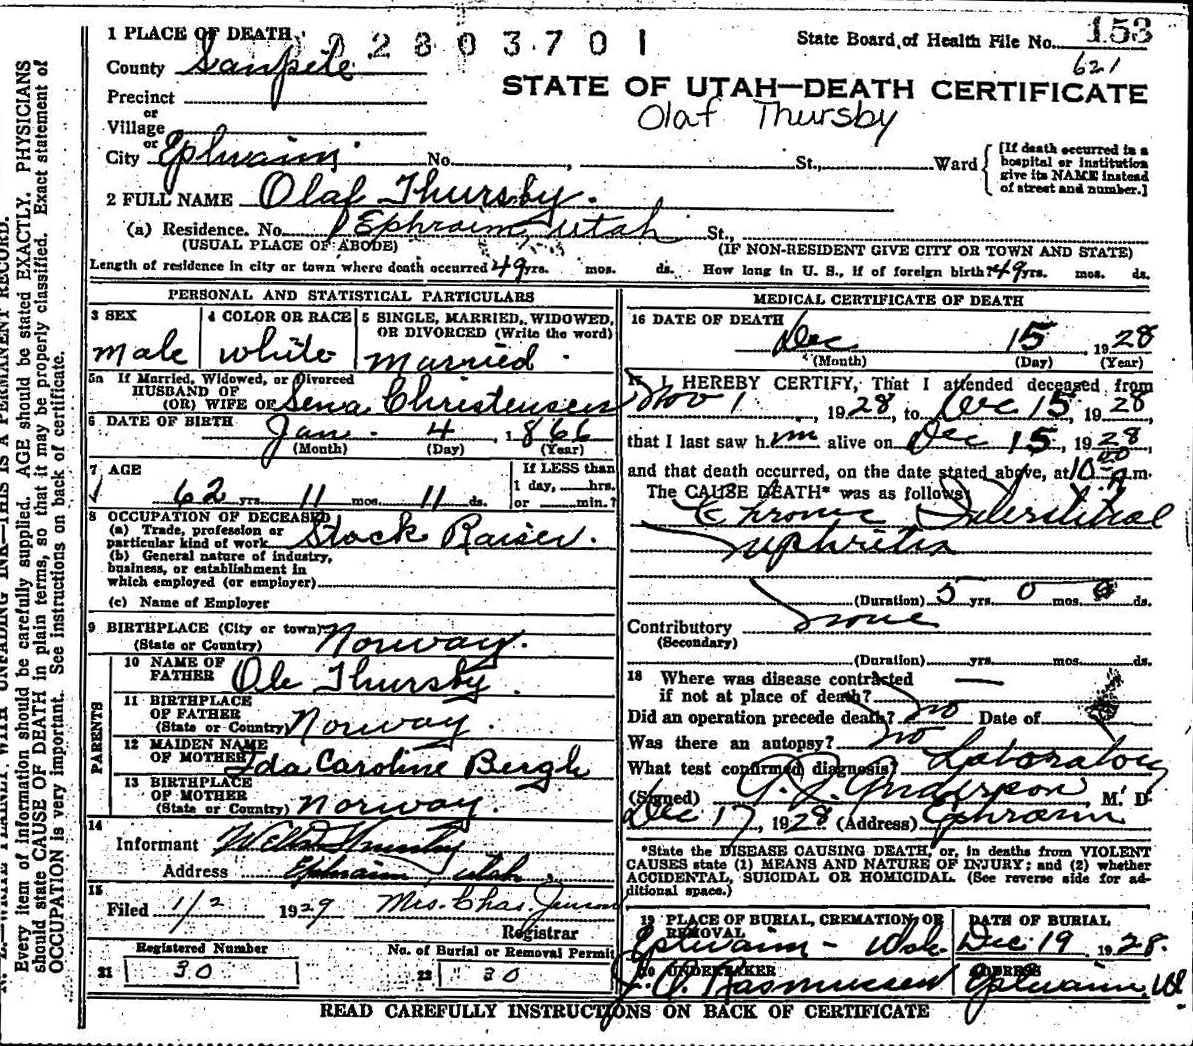 1 PLACE OF DEATH
0 2 8 0 3 7 0 1
State Board of Health File No. 153
621
County Sanpete
STATE OF UTAH—DEATH CERTIFICATE
Precinct
Olaf Thursby
or
Village
or
City Ephraim No. , St., Ward
[If death occurred in a hospital or institution give its NAME instead of street and number.]
2 FULL NAME Olaf Thursby.
(a) Residence. No. Ephraim, Utah St.,
(USUAL PLACE OF ABODE) (IF NON-RESIDENT GIVE CITY OR TOWN AND STATE)
Length of residence in city or town where death occurred 49 yrs. mos. ds. How long in U. S., if of foreign birth? 49 yrs. mos. ds.
PERSONAL AND STATISTICAL PARTICULARS
3 SEX
Male
4 COLOR OR RACE
white
5 SINGLE, MARRIED, WIDOWED,
OR DIVORCED (Write the word)
Married.
5a If Married, Widowed, or Divorced
HUSBAND OF
(OR) WIFE OF Sena Christensen
6 DATE OF BIRTH Jan. 4, 1866
(Month) (Day) (Year)
7 AGE
62 yrs. 11 mos. 11 ds.
If LESS than
1 day, hrs.
or min.?
8 OCCUPATION OF DECEASED
(a) Trade, profession or
particular kind of work Stock Raiser.
(b) General nature of industry,
business, or establishment in
which employed (or employer)
(c) Name of Employer
9 BIRTHPLACE (City or town)
(State or Country) Norway.
PARENTS
10 NAME OF
FATHER Ole Thursby.
11 BIRTHPLACE
OF FATHER
(State or Country) Norway.
12 MAIDEN NAME
OF MOTHER Ida Caroline Bergh
13 BIRTHPLACE
OF MOTHER
(State or Country) Norway.
14
Informant
Address Ephraim, Utah.
15
Filed 1/2 1929 Mrs. Chas. Jenson
Registrar
Registered Number
21 30
No. of Burial or Removal Permit
22 30
MEDICAL CERTIFICATE OF DEATH
16 DATE OF DEATH
Dec 15, 1928
(Month) (Day) (Year)
17 I HEREBY CERTIFY, That I attended deceased from
Nov 1, 1928, to Dec 15, 1928,
that I last saw him alive on Dec 15, 1928
and that death occurred, on the date stated above, at 10:00 m.
The CAUSE DEATH* was as follows:
Chronic Interstitial
Nephritis
(Duration) 5 yrs. 0 mos. 0 ds.
Contributory None
(Secondary)
(Duration) yrs. mos. ds.
18 Where was disease contracted
if not at place of death? —
Did an operation precede death? No Date of
Was there an autopsy? No
What test confirmed diagnosis? Laboratory
(Signed) Anderson M. D.
Dec 17, 1928 (Address) Ephraim
*State the DISEASE CAUSING DEATH, or, in deaths from VIOLENT
CAUSES state (1) MEANS AND NATURE OF INJURY; and (2) whether
ACCIDENTAL, SUICIDAL OR HOMICIDAL. (See reverse side for ad-
ditional space.)
19 PLACE OF BURIAL, CREMATION, OR
REMOVAL
Ephraim - Utah
DATE OF BURIAL
Dec. 19 1928.
20 UNDERTAKER
Rasmussen
ADDRESS
Ephraim, Ut.
READ CAREFULLY INSTRUCTIONS ON BACK OF CERTIFICATE
N. B.—WRITE PLAINLY, WITH UNFADING INK—THIS IS A PERMANENT RECORD.
Every item of information should be carefully supplied. AGE should be stated EXACTLY. PHYSICIANS
should state CAUSE OF DEATH in plain terms, so that it may be properly classified. Exact statement of
OCCUPATION is very important. See instructions on back of certificate.